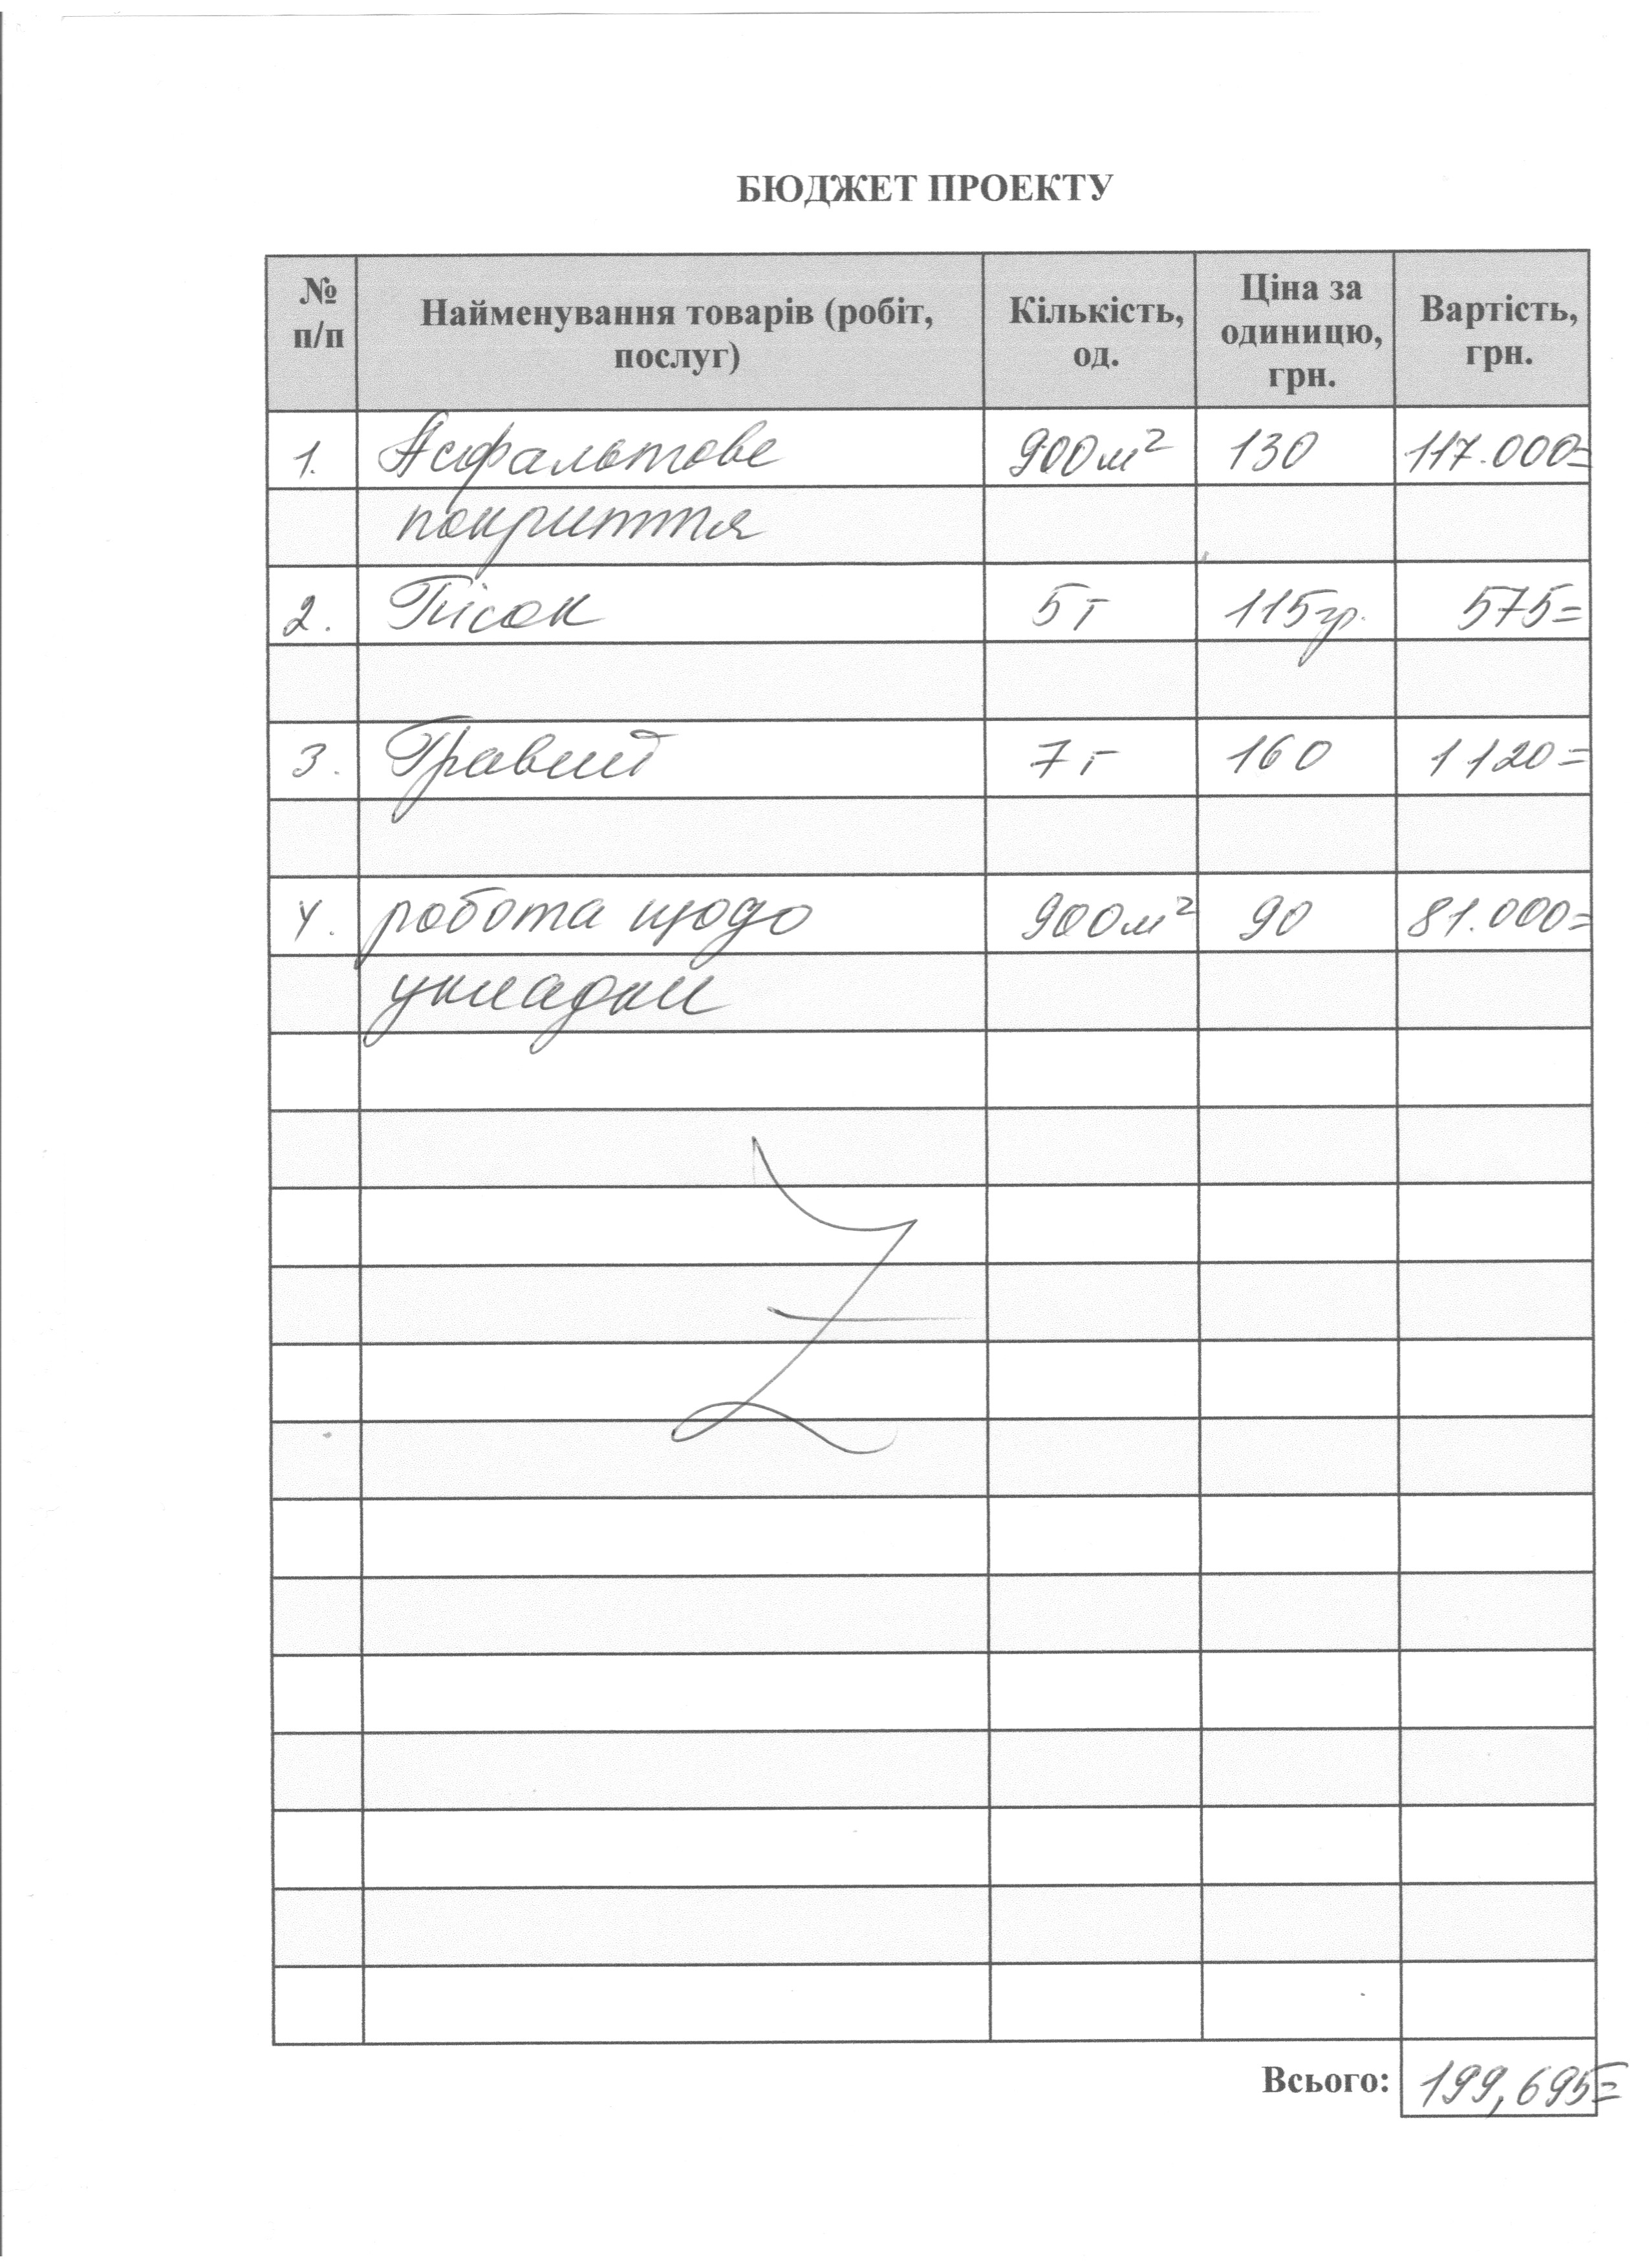 БЮДЖЕТ ПРОЕКТУ
№ п/п Найменування товарів (робіт, послуг) Кількість, од. Ціна за одиницю, грн. Вартість, грн.
1. Асфальтове 900м² 130 117.000=
покриття
2. Пісок 5т 115гр. 575=
3. Гравий 7т 160 1120=
4. робота щодо 900м² 90 81.000=
укладки
Всього: 199,695=